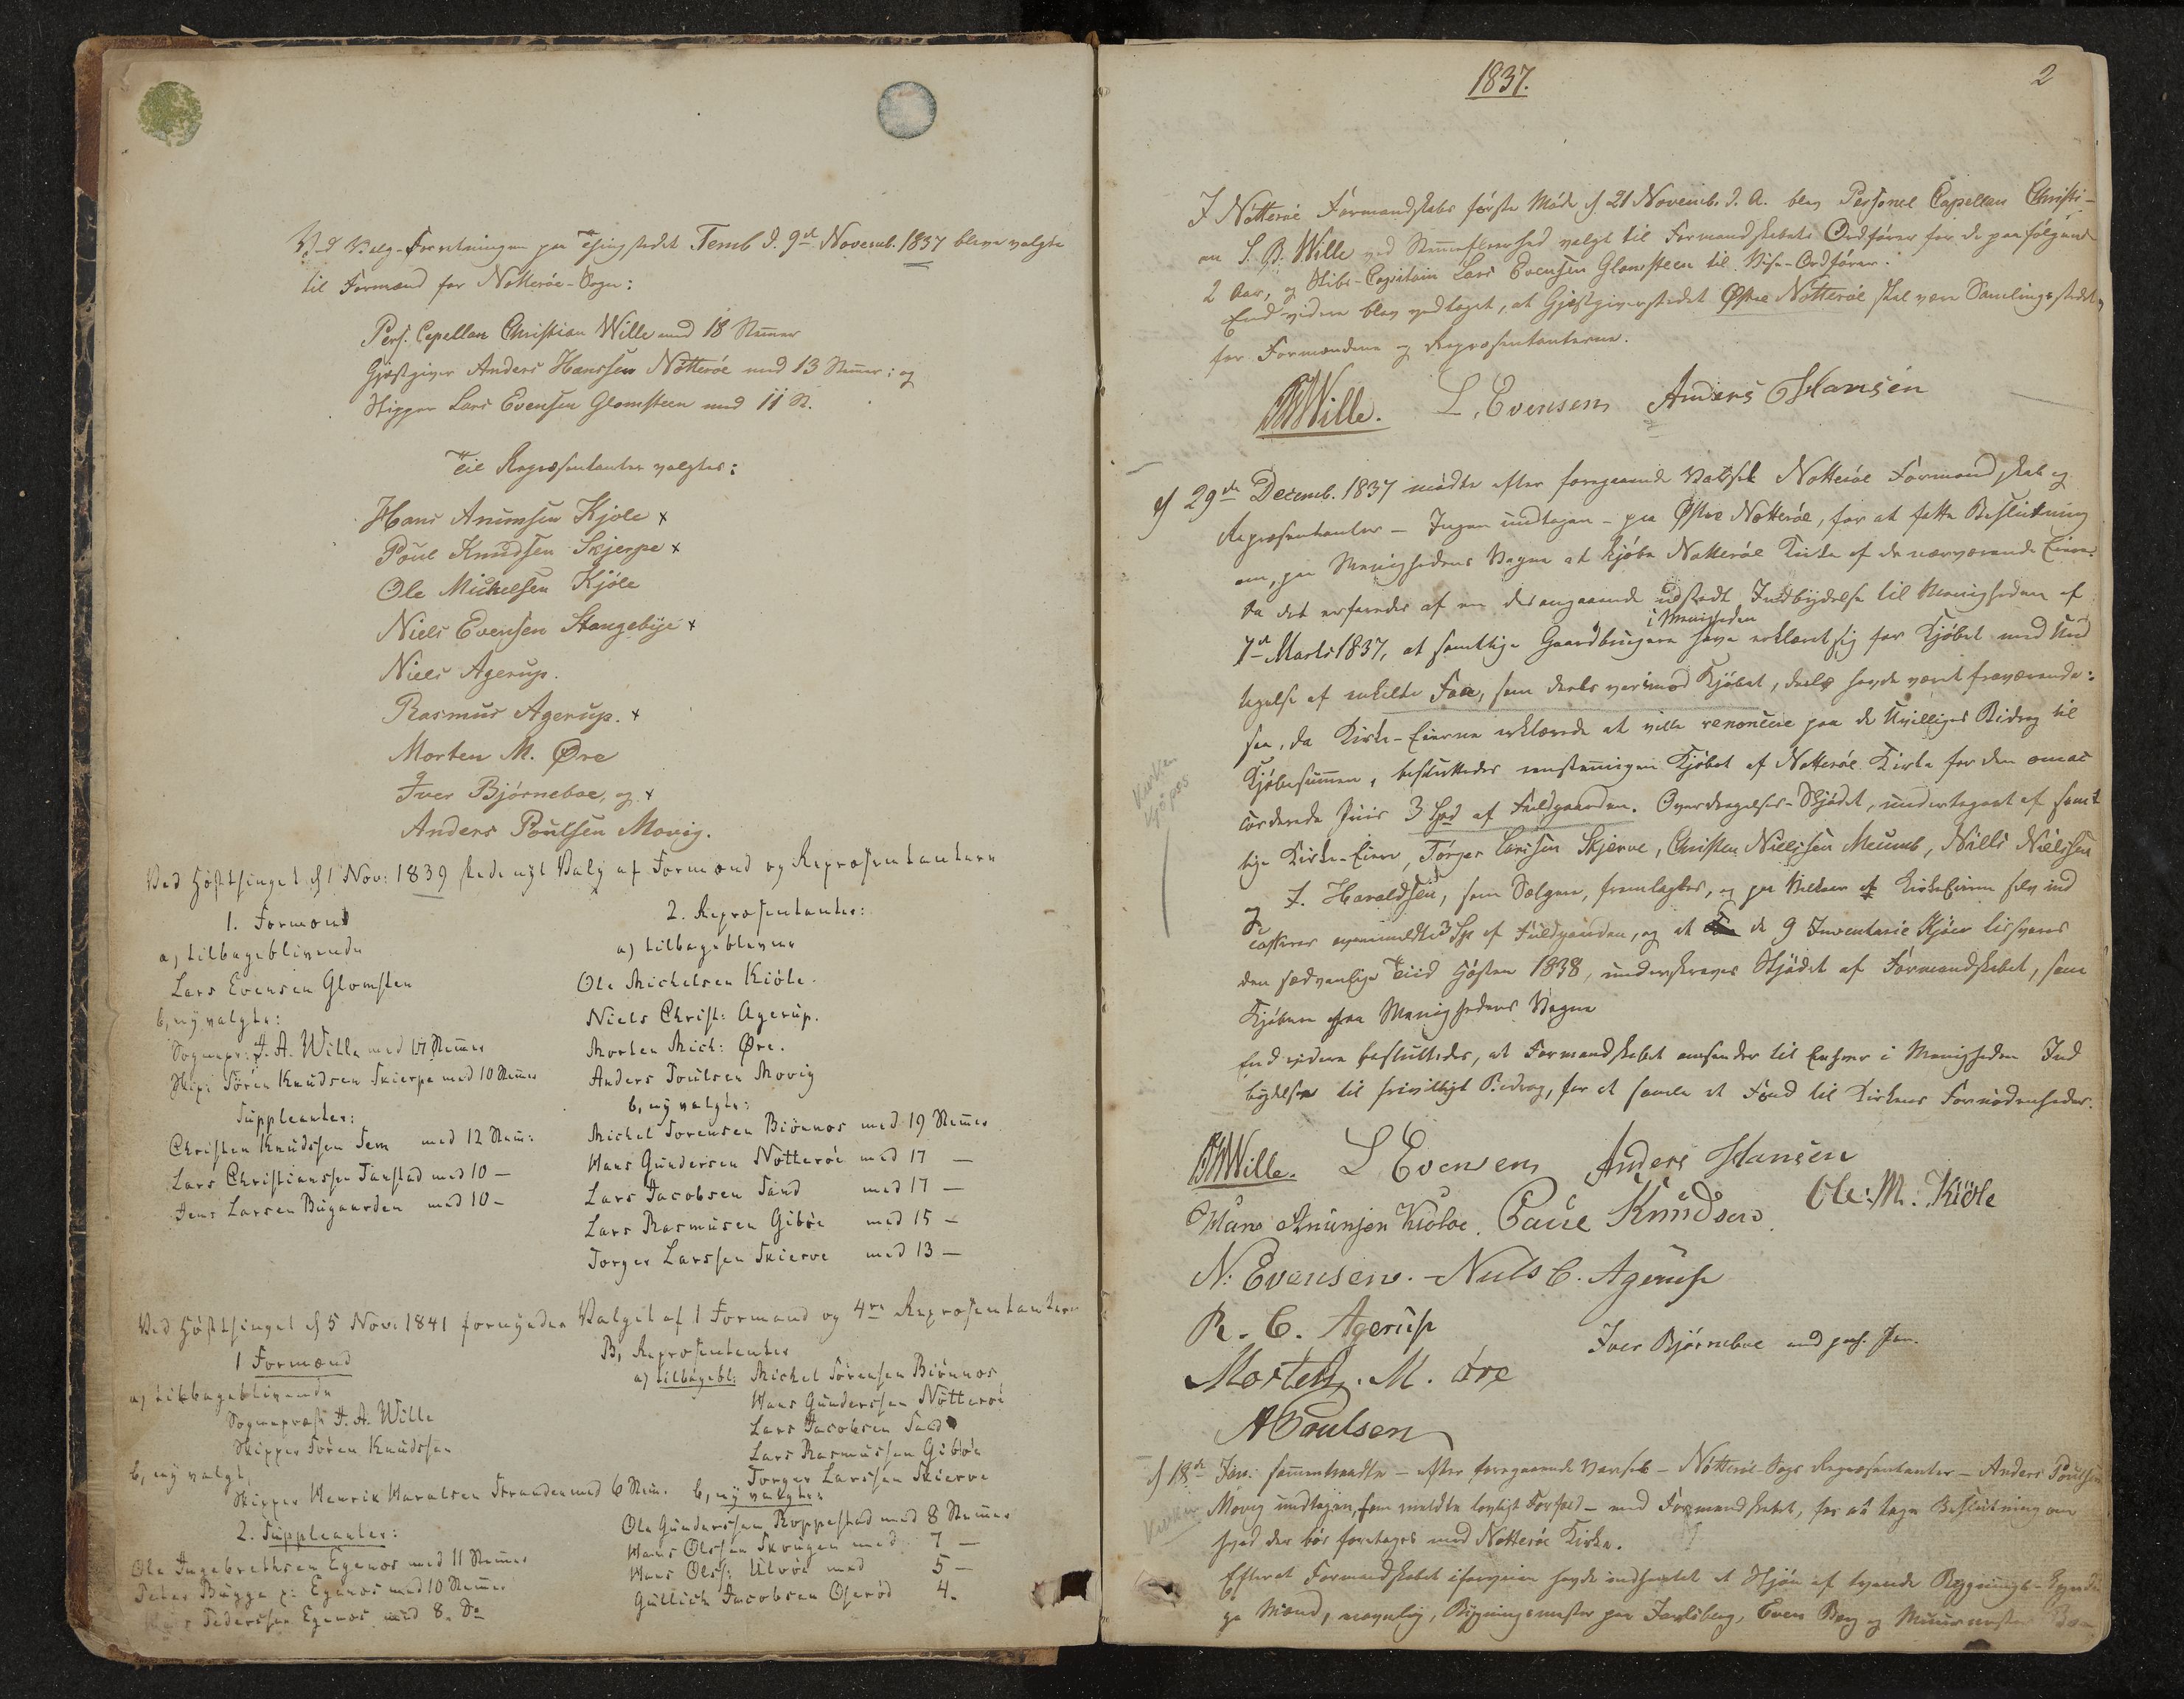 Ved Valg-Forretningen paa Thingstedet Temb d. 9de Novemb. 1837 bleve valgte
til Formænd for Nøtterøe-Sogn:
Pers. Capellan Christian Wille med 18 Stemmer
Gjæstgiver Anders Hanssen Nøtterøe med 13 Stemmer; og
Skipper Lars Evensen Glomsteen med 11 St.
Til Repræsentanter valgtes:
Hans Anunsen Kjole x
Poul Knudsen Skjerpe x
Ole Michelsen Kjøle
Niels Evensen Stangebye x
Niels Agerup.
Rasmus Agerup. x
Morten M. Øre
Iver Bjørneboe, og x
Anders Poulsen Movig.
Ved Høstthinget d 1 Nov: 1839 skede nyt Valg af Formænd og Repræsentantere
1. Formænd
a, tilbageblivende
Lars Evensen Glomsten
b, ny valgte:
Sognepr: J. A. Wille med 17 Stemmer
Skip: Sören Knudsen Skierpe med 10 Stemmer
Suppleanter:
Christen Knudssen Tem med 12 Stem:
Lars Christianssen Tanstad med 10 —
Jens Larsen Bugaarden med 10 —
2. Repræsentanter:
a, tilbageblevne
Ole Michelsen Kiöle.
Niels Christ: Agerup.
Morten Mich: Øre.
Anders Poulsen Movig
b, ny valgte:
Michel Sorensen Biönnes med 19 Stemmer
Hans Gundersen Nötteröe med 17 —
Lars Jacobsen Sand med 17 —
Lars Rasmusen Giböe med 15 —
Torger Larssen Skierve med 13 —
Ved Höstthinget d 5 Nov: 1841 fornyedes Valget af 1 Formand og 4re Repræsentantere
1 Formænd
a, tilbageblivende
Sognepræst J. A. Wille
Skipper Sören Knudssen
b, ny valgt,
Skipper Henrik Haralsen Stranden med 6 Stem.
2. Suppleanter:
Ole Ingebrethsen Egenes med 11 Stemmer
Peter Bugge p: Egenes med 10 Stemmer
Pederssen Egenes med 8. Do
B, Repræsentanter
a, tilbagebl: Michel Sörensen Biönnes
Hans Gunderssen Nötteröe
Lars Jacobsen Sand
Lars Rasmussen Giböe
Torger Larssen Skierve
b, ny valgte
Ole Gunderssen Roppestad med 8 Stemmer
Hans Olssen Skougen med 7 —
Hans Olss: Ulvöe med 5 —
Gullich Jacobsen Oserød 4.
1837.
2
I Nøtterøe Formandskabs første Møde d. 21 Novemb. d. A. blev Personel Capellan Christi-
an S. B. Wille ved Stemmefleerhed valgt til Formandskabets Ordfører for de paafølgende
2 Aar, og Skibs-Capitain Lars Evensen Glomsteen til Vise-Ordfører.
End videre blev vedtaget, at Gjæstgiverstedet Østre Nøtterøe skal være Samlingsstedet
for Formændene og Repræsentanterne.
Wille. L. Evensen Anders Hansen
d 29de Decemb. 1837 mødte efter foregaaende Varsel Nøtterøe Formandskab og
Repræsentanter – Ingen undtagen – paa Østre Nøtterøe, for at fatte Beslutning
om, paa Menighedens Vegne at kjøbe Nøtterøe Kirke af de nærværende Eiere.
Da det erfaredes af en desangaaende udstædt Indbydelse til Menigheden af
i Menigheden
7de Marts 1837, at samtlige Gaardbrugere have erklæret sig for Kjøbet med Und
tagelse af enkelte Faa, som deels var imod Kjøbet, deels havde været fraværende:
saa, da Kirke-Eierne erklærede at ville renoncere paa de Uvilliges Bidrag til
Kjøbesummen, besluttedes eenstemmigen Kjøbet af Nøtterøe Kirke for den omac
corderede Priis 3 Spd af Fuldgaarden. Overdragelses-Skjødet, undertegnet af samt
lige Kirke-Eiere, Torger Larssen Skjerve, Christen Nielssen Meumb, Nills Nielssen
og F. Haraldsen, som Sælgere, fremlagdes, og paa Vilkaar at Kirkeeierne selv ind
casserer ovenmeldte 3 Spd af Fuldgaarden, og at de 9 Inventarie Kjøer lisværes
den sædvanlige Tiid Høsten 1838, underskreves Skjødet af Formandskabet, som
Kjøbere paa Menighedens Vegne
End videre besluttedes, at Formandskabet omsender til Enhver i Menigheden Ind
bydelse til frivilligt Bidrag, for at samle et Fond til Kirkens Fornødenheder.
Kirken
kjøpes
Wille. L Evensen Anders Hansen
Hans Anunsen Kiølve. Paul Knudsen. Ole: M. Kiöle
N: Evensen. Niels C. Agerup
R. C. Agerup
Iver Bjørneboe med paah. Pen.
Morten. M. öre
A Poulsen
d 18de Jan: sammentraadte – efter foregaaende Varsel – Nøtterøe-Sogns Repræsentanter – Anders Poulsen
Movig undtagen, som meldte lovligt Forfald – med Formandskabet, for at tage Beslutning om
hvad der bør foretages med Nøtterøe Kirke.
Kirken
Efterat Formandskabet iforveien havde indhentet et Skjøn af tvende Bygnings-Kyndi
ge Mænd, navnlig, Bygningsmester paa Jarlsberg, Even Berg og Muurmester